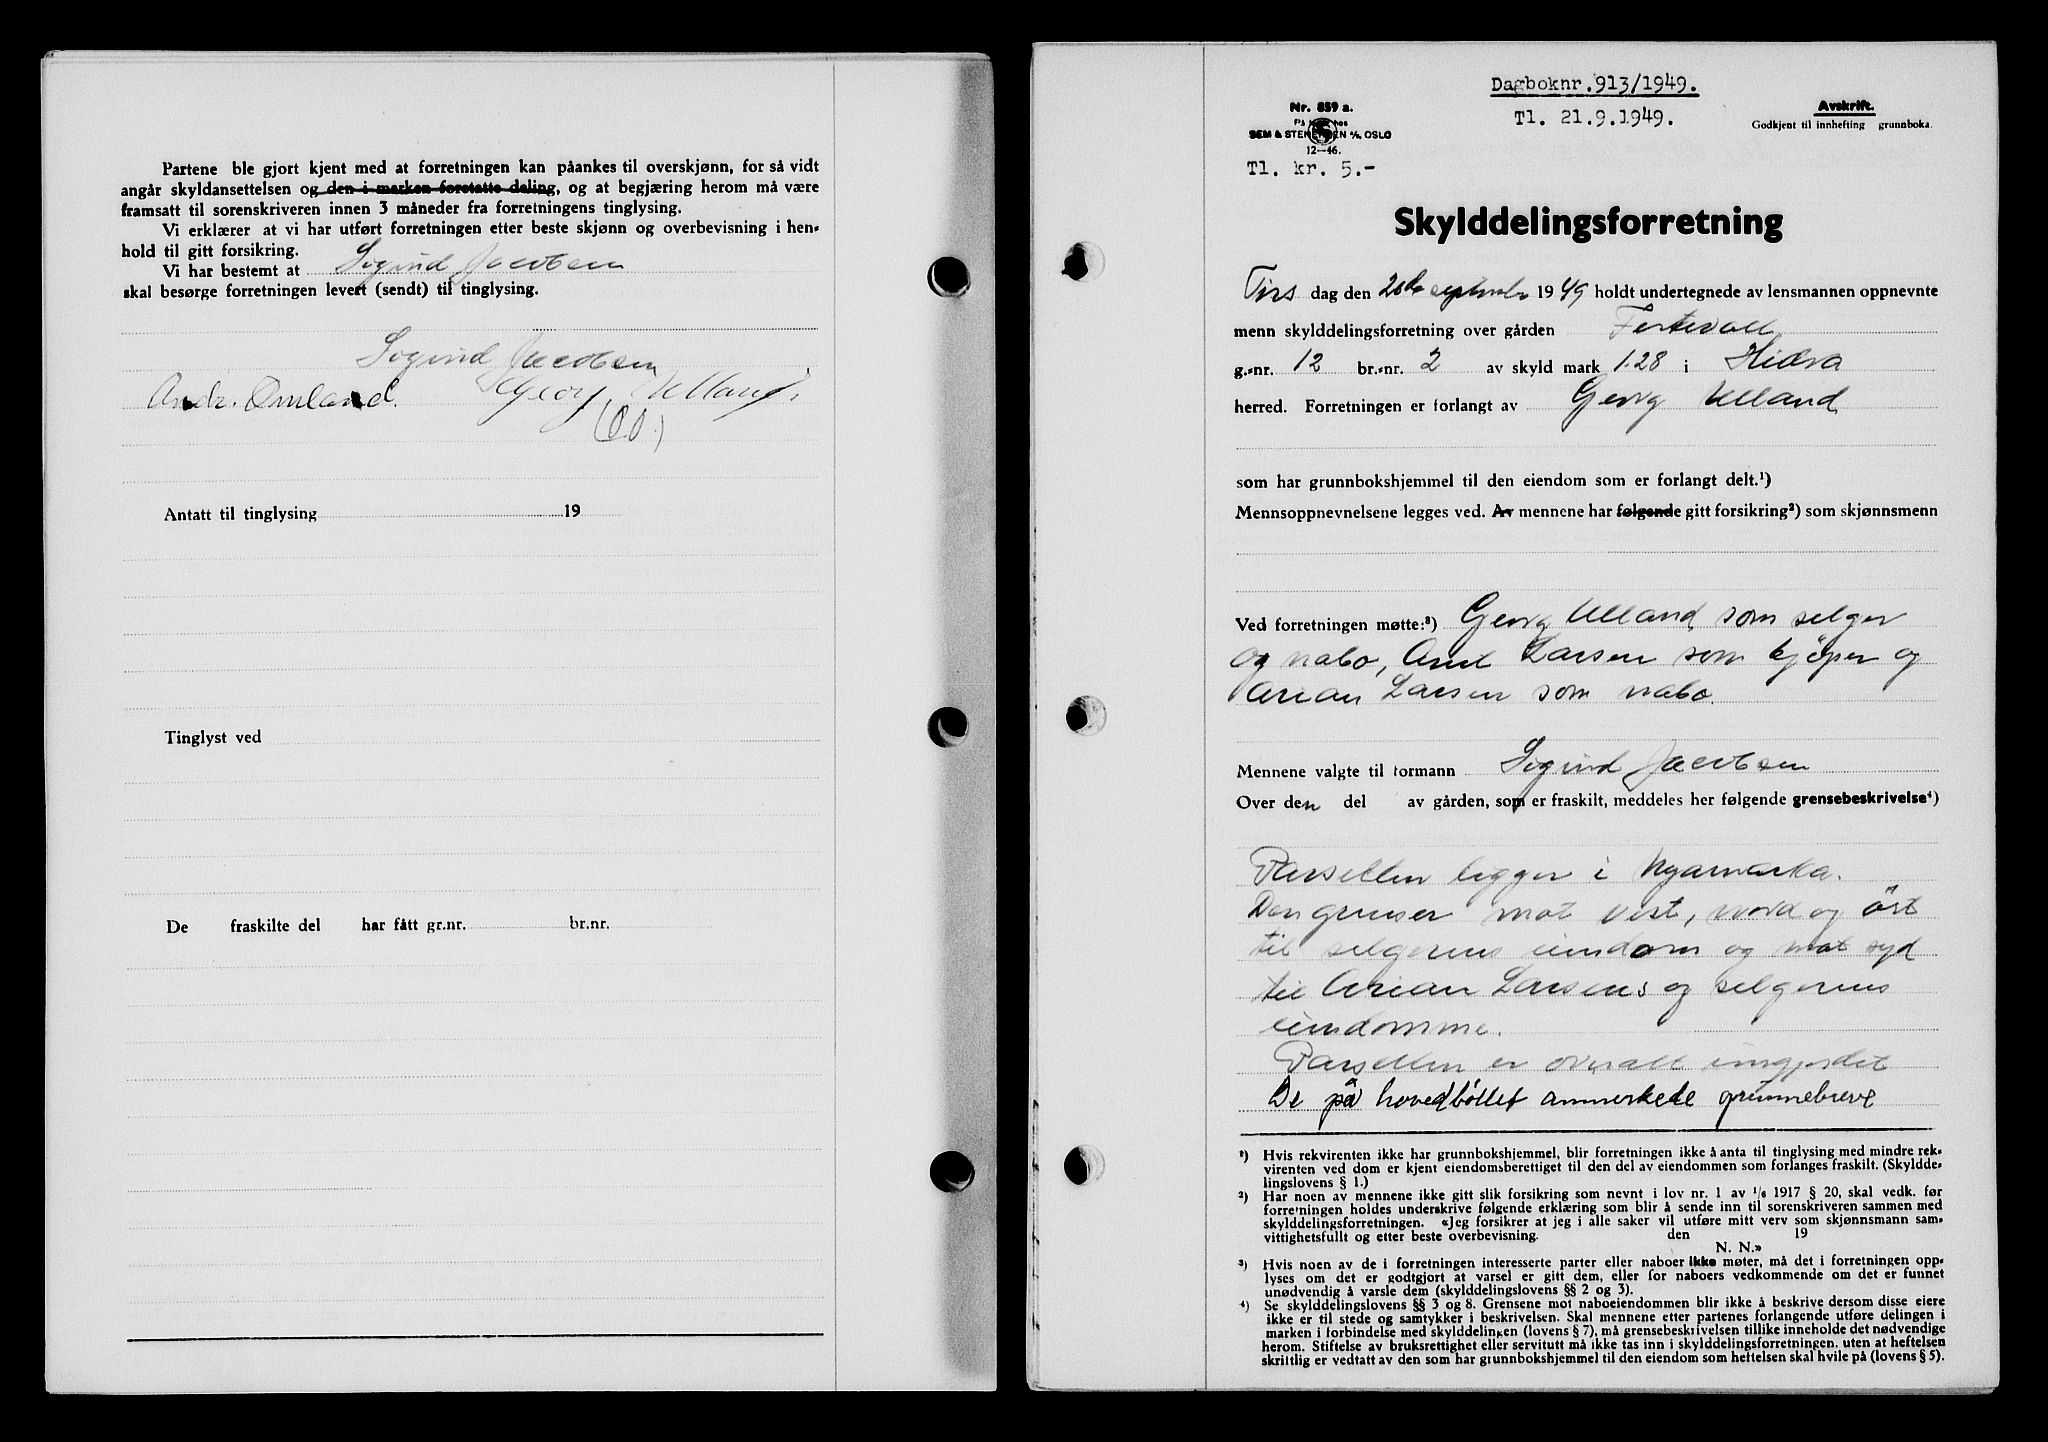 Partene ble gjort kjent med at forretningen kan påankes til overskjønn, for så vidt
angår skyldansettelsen og den i marken foretatte deling, og at begjæring herom må være
framsatt til sorenskriveren innen 3 måneder fra forretningens tinglysing.
Vi erklærer at vi har utført forretningen etter beste skjønn og overbevisning i hen-
hold til gitt forsikring.
Vi har bestemt at Sigurd Jacobsen
skal besørge forretningen levert (sendt) til tinglysing.
Sigurd Jacobsen
Andr. Omland. Georg Ulland.
Antatt til tinglysing 19
Tinglyst ved
De fraskilte del har fått gr.nr. br.nr.
Dagboknr. 913/1949.
Tl. 21.9.1949.
Nr. 859 a.
SEM & STENERSEN A/S, OSLO
12—46.
Tl. kr. 5.-
Avskrift.
Godkjent til innhefting grunnboka.
Skylddelingsforretning
Tirs dag den 20de september 1949 holdt undertegnede av lensmannen oppnevnte
menn skylddelingsforretning over gården
g.-nr. 12 br.-nr. 2 av skyld mark 1.28 i Hidra
herred. Forretningen er forlangt av Georg Ulland
som har grunnbokshjemmel til den eiendom som er forlangt delt.¹)
Mennsoppnevnelsene legges ved. Av mennene har følgende gitt forsikring²) som skjønnsmenn
Ved forretningen møtte:³) Georg Ulland som selger
og nabo, Arnt Larsen som kjöper og
Arian Larsen som nabo.
Mennene valgte til formann Sigurd Jacobsen
Over den del av gården, som er fraskilt, meddeles her følgende grensebeskrivelse⁴)
Parsellen ligger i Nyamarka.
Den grenser mot vest, nord og öst
til selgerens eiendom og mot syd
til Arian Larsens og selgerens
eiendomme.
Parsellen er overalt inngjerdet
De på hovedbøllet anmerkede grunnebreve
¹) Hvis rekvirenten ikke har grunnbokshjemmel, blir forretningen ikke å anta til tinglysing med mindre rek-
virenten ved dom er kjent eiendomsberettiget til den del av eiendommen som forlanges fraskilt. (Skyldde-
lingslovens § 1.)
²) Har noen av mennene ikke gitt slik forsikring som nevnt i lov nr. 1 av 1/6 1917 § 20, skal vedk. før
forretningen holdes underskrive følgende erklæring som blir å sende inn til sorenskriveren sammen med
skylddelingsforretningen. «Jeg forsikrer at jeg i alle saker vil utføre mitt verv som skjønnsmann sam-
vittighetsfullt og etter beste overbevisning. den 19
N. N.»
³) Hvis noen av de i forretningen interesserte parter eller naboer ikke møter, må det i forretningen opp-
lyses om det er godtgjort at varsel er gitt dem, eller for naboers vedkommende om det er funnet
unødvendig å varsle dem (skylddelingslovens §§ 2 og 3).
⁴) Se skylddelingslovens §§ 3 og 8. Grensene mot naboeiendommen blir ikke å beskrive dersom disse eiere
ikke er til stede og samtykker i beskrivelsen. Skal mennene etter partenes forlangende utføre delingen i
marken i forbindelse med skylddelingen (lovens § 7), må grensebeskrivelsen tillike inneholde det nødvendige
herom. Stiftelse av bruksrettighet eller servitutt må ikke tas inn i skylddelingsforretningen, uten at heftelsen
skriftlig er vedtatt av den som har grunnbokshjemmel til den eiendom som heftelsen skal hvile på (lovens § 5).